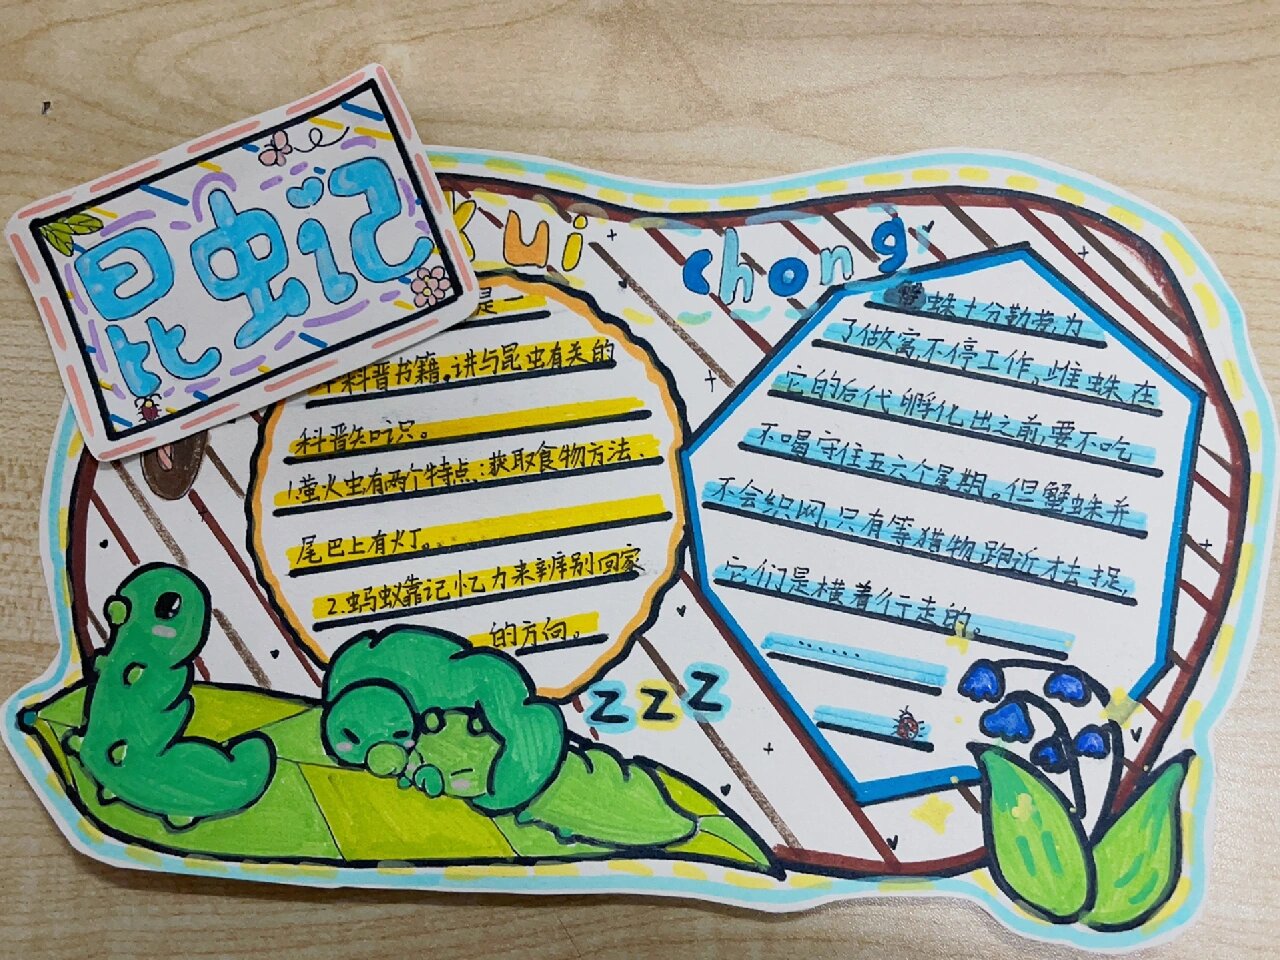 昆虫记
kui chong
是一
科普书籍,讲与昆虫有关的
科普知识。
1.萤火虫有两个特点:获取食物方法、
尾巴上有火丁。
2.蚂蚁靠记忆力来辨别回家
的方向。
zzz
蟹蛛十分勤劳,为
了做窝,不停工作,雌蛛在
它的后代孵化出之前,要不吃
不喝守住五六个星期。但蟹蛛并
不会织网,只有等猎物跑近才去捉,
它们是横着行走的。
……